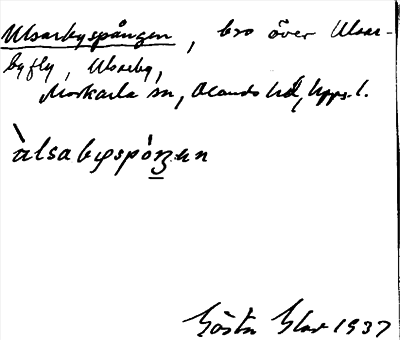 Ulsarbyspången, bro över Ulsar-
byfly, Ulsarby,
Morkarla sn, Olands hd, Upps. l.
àlsabyspóŋ͟ən
Gösta Elov 1937